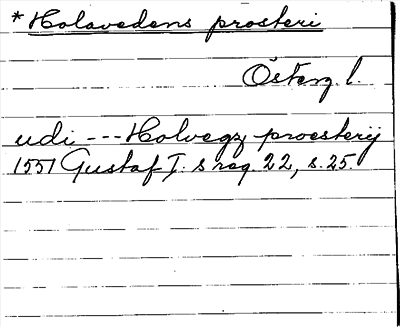 *Holavedens prosteri
Österg. l.
udi --- Holvegz proesterij
1551 Gustaf I:s reg. 22, s. 25.